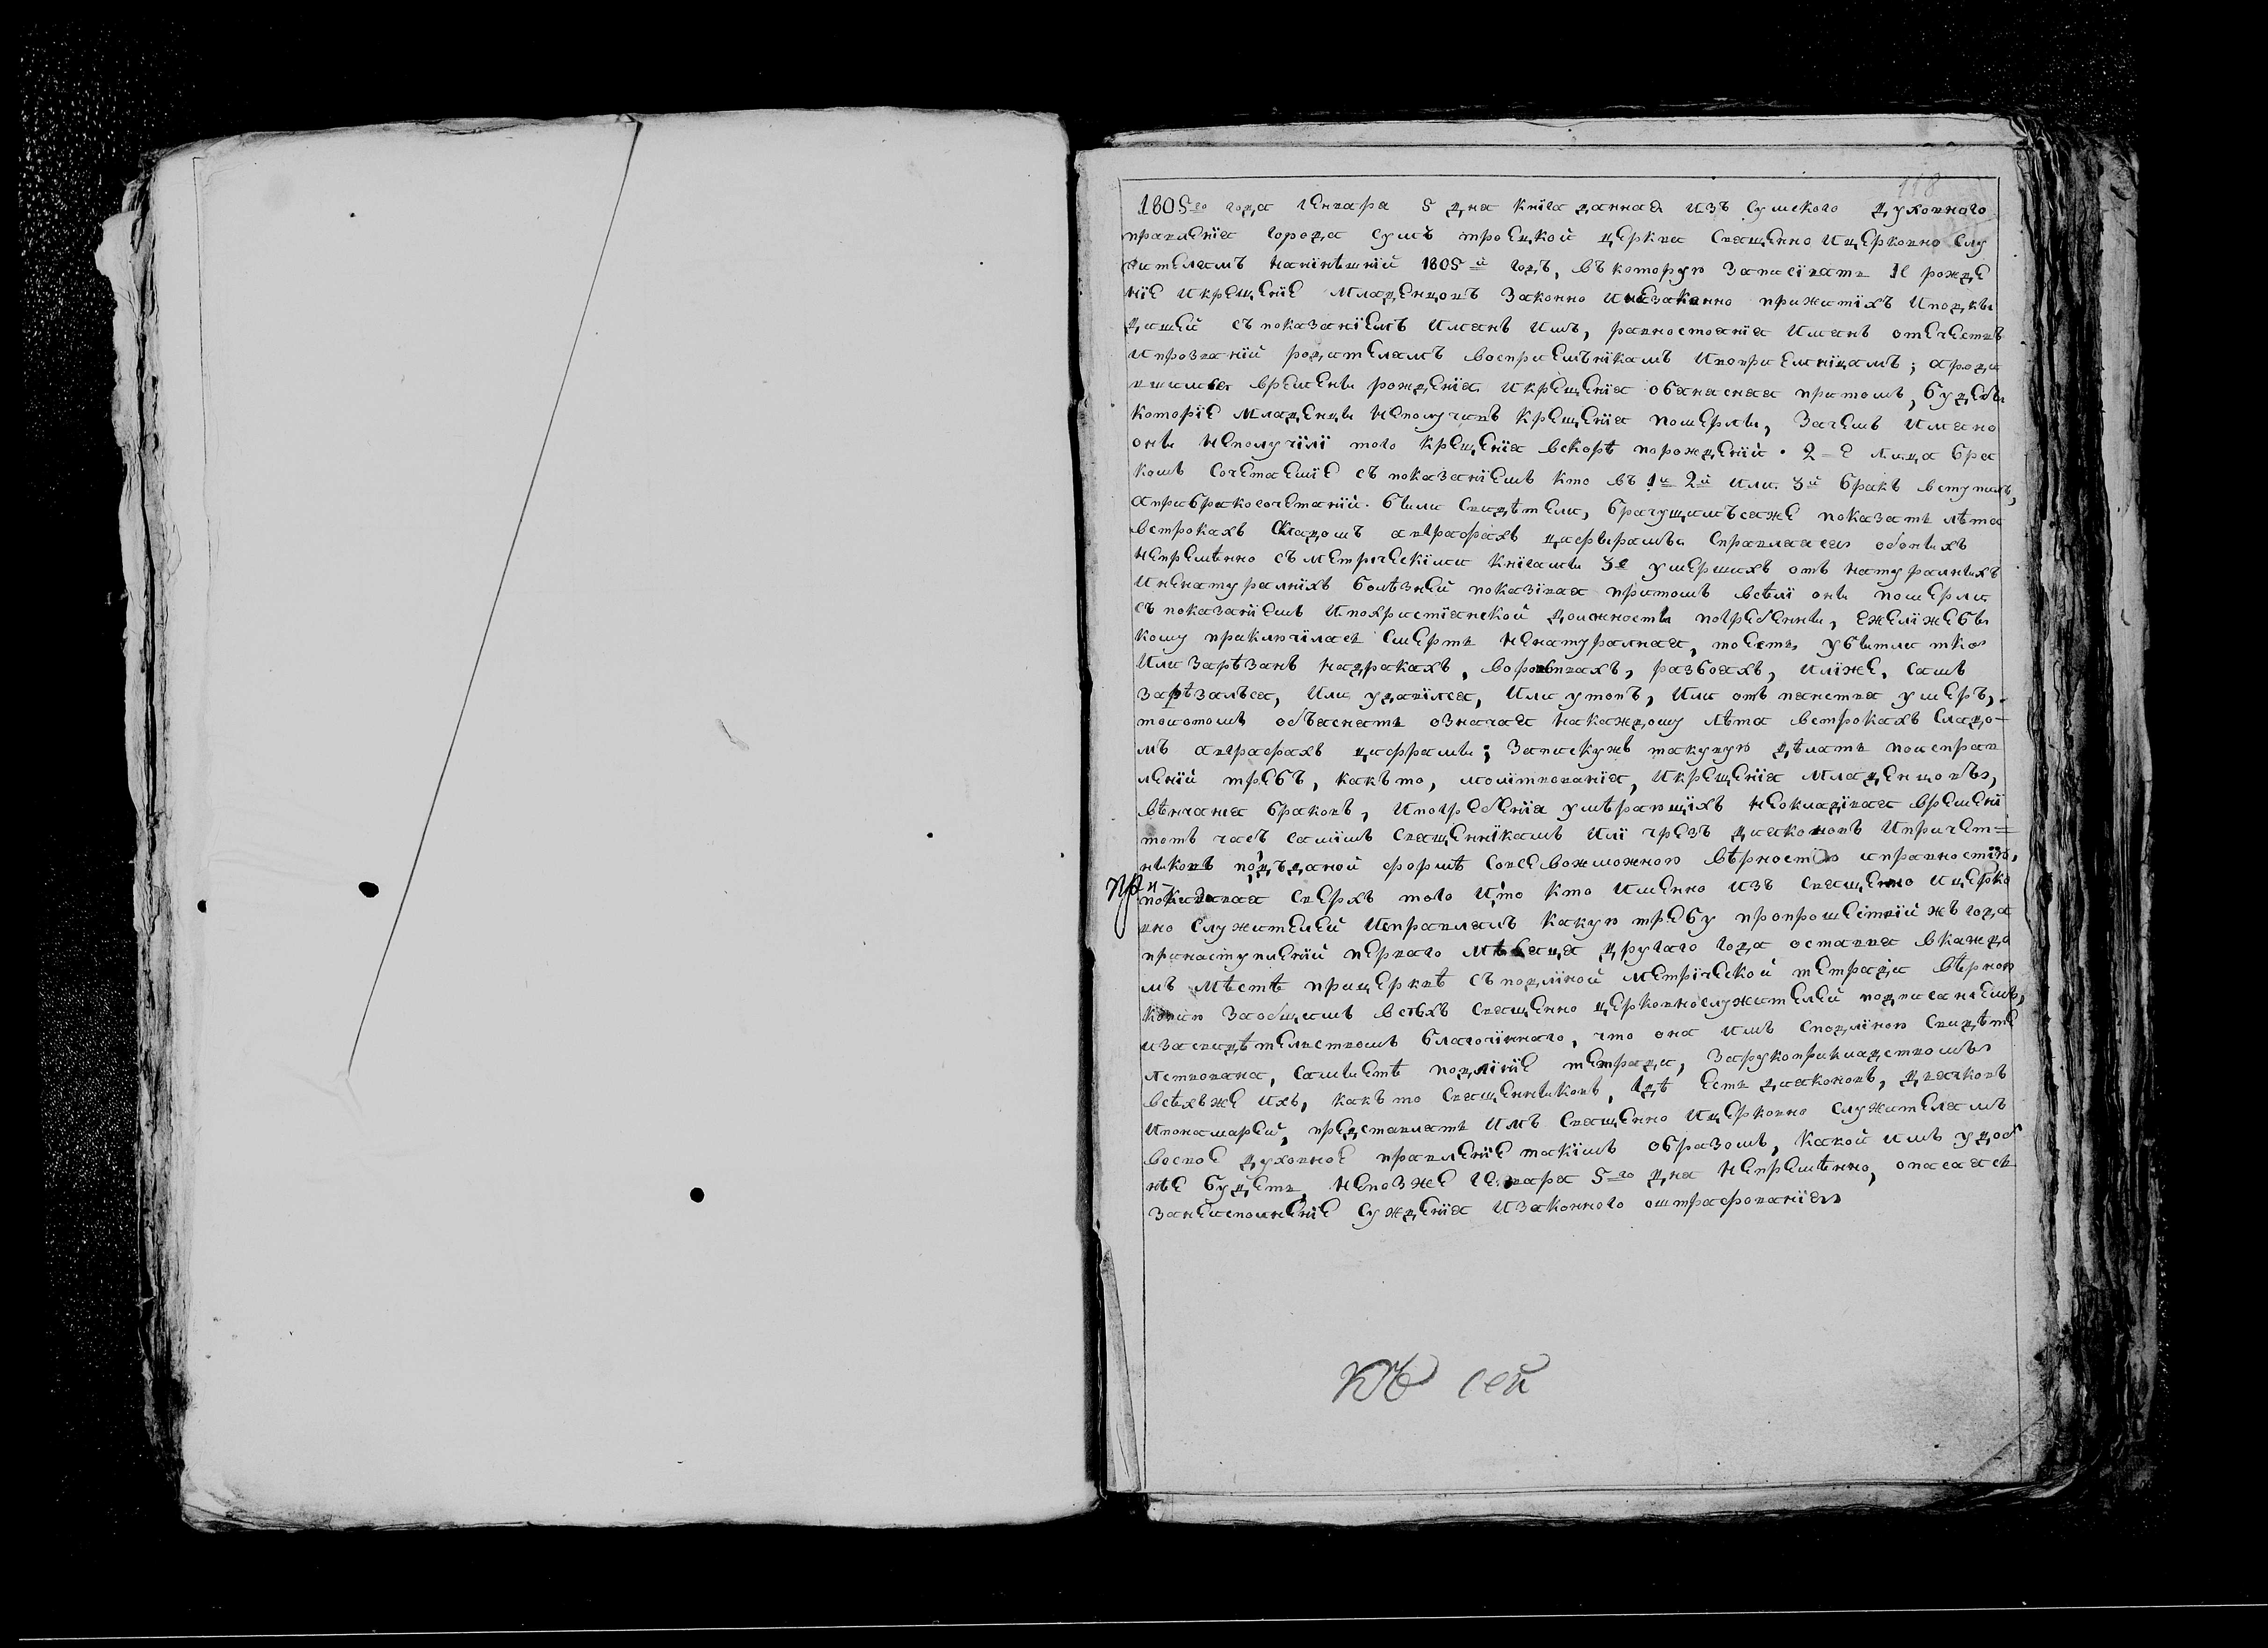 118
1805го года генваря 5 дня книга данная изъ сумского духовного
правления города сумъ троецкой церкви священно ицерковно слу
жителямъ нанінешній 1805й годъ, въ которую записівать 1е рожде
ніе икрещеніе младенцовъ законно инезаконно прижитіхъ иподки
дишей съ показаніемъ имянъ имъ, равностоянія имянъ отечествъ
ипрозваній родителямъ восприемънікамъ ивоприемніцамъ; ароди
вшимься времены рожденія икрещенія обяняснея притомъ, будебы
которіе младенцы неполучивъ крещенія померлы, зачемъ имяно
оны неполучілі того крещенія вскоре порожденій. 2=е лица бра
комъ сочетаемие съ показаніемъ кто въ 1й 2й или 3й бракъ вступилъ,
априбракосочетаніи. были свидѣтели, брачущимъсяже показать лѣта
встрокахъ складомъ авграфахъ цыфырамы справляясь обоныхъ
непремѣнно съ метрическіми книгамы 3е умершихъ отъ натуралныхъ
иненатуралніхъ болѣзней показівая притомъ всѣлі оны померли
съ показаніемъ ипохристіянской должносты погребенны, ежеліжебы
кому приключілась смерть ненатуралная, тоесть убытли кто
или зарѣзанъ надракахъ, воровствахъ, разбояхъ, иліже, самъ
зарѣзалъся, или удавілся, или утопъ, или отъ пянства умеръ,
тоиотомъ объяснять означая накаждому лѣта встрокахъ складо=
мъ авграфахъ цифрамы; запискужъ такувую дѣлать поисправ
леній требъ, какъто, молітвованія, икрещенія младенцовъ,
вѣнчания браковъ, ипогребенія умѣравщіхъ неокладівая времені
тотъ часъ самімъ священнікамъ илі чрезъ диаконовъ ипричет=
никовъ подъданой формѣ совсевожможною вѣрностію иправностію,
при-
показівая сверхъ того ито кто именно изъ священно ицерко
вно служителей исправлялъ какую требу пропрошествій жъ года
принаступленій перваго мѣсяца другаго года оставя вкаждо
мъ мѣсте прицерквѣ съподліной метріческой тетради вѣрною
копию заобщимъ всѣхъ священно церковнослужителей подписанемъ,
изасвидѣтелствомъ благочінного, что она имъ сподліною свидѣте
лствована, самыетѣ подлініе тетради, зарукоприкладствомъ
всѣхъже ихъ, какъ то священныковъ, гдѣ есть диаконовъ, дячковъ
ипонамарей, представлять имъ священно ицерковно служителямъ
восвое духовное правленіе такімъ образомъ, какой имъ удоб
нѣе будетъ, непозже генваря 5го дня непремѣнно, опасаясь
занеисполненіе сужденія изаконного оштрафованія
къ сей